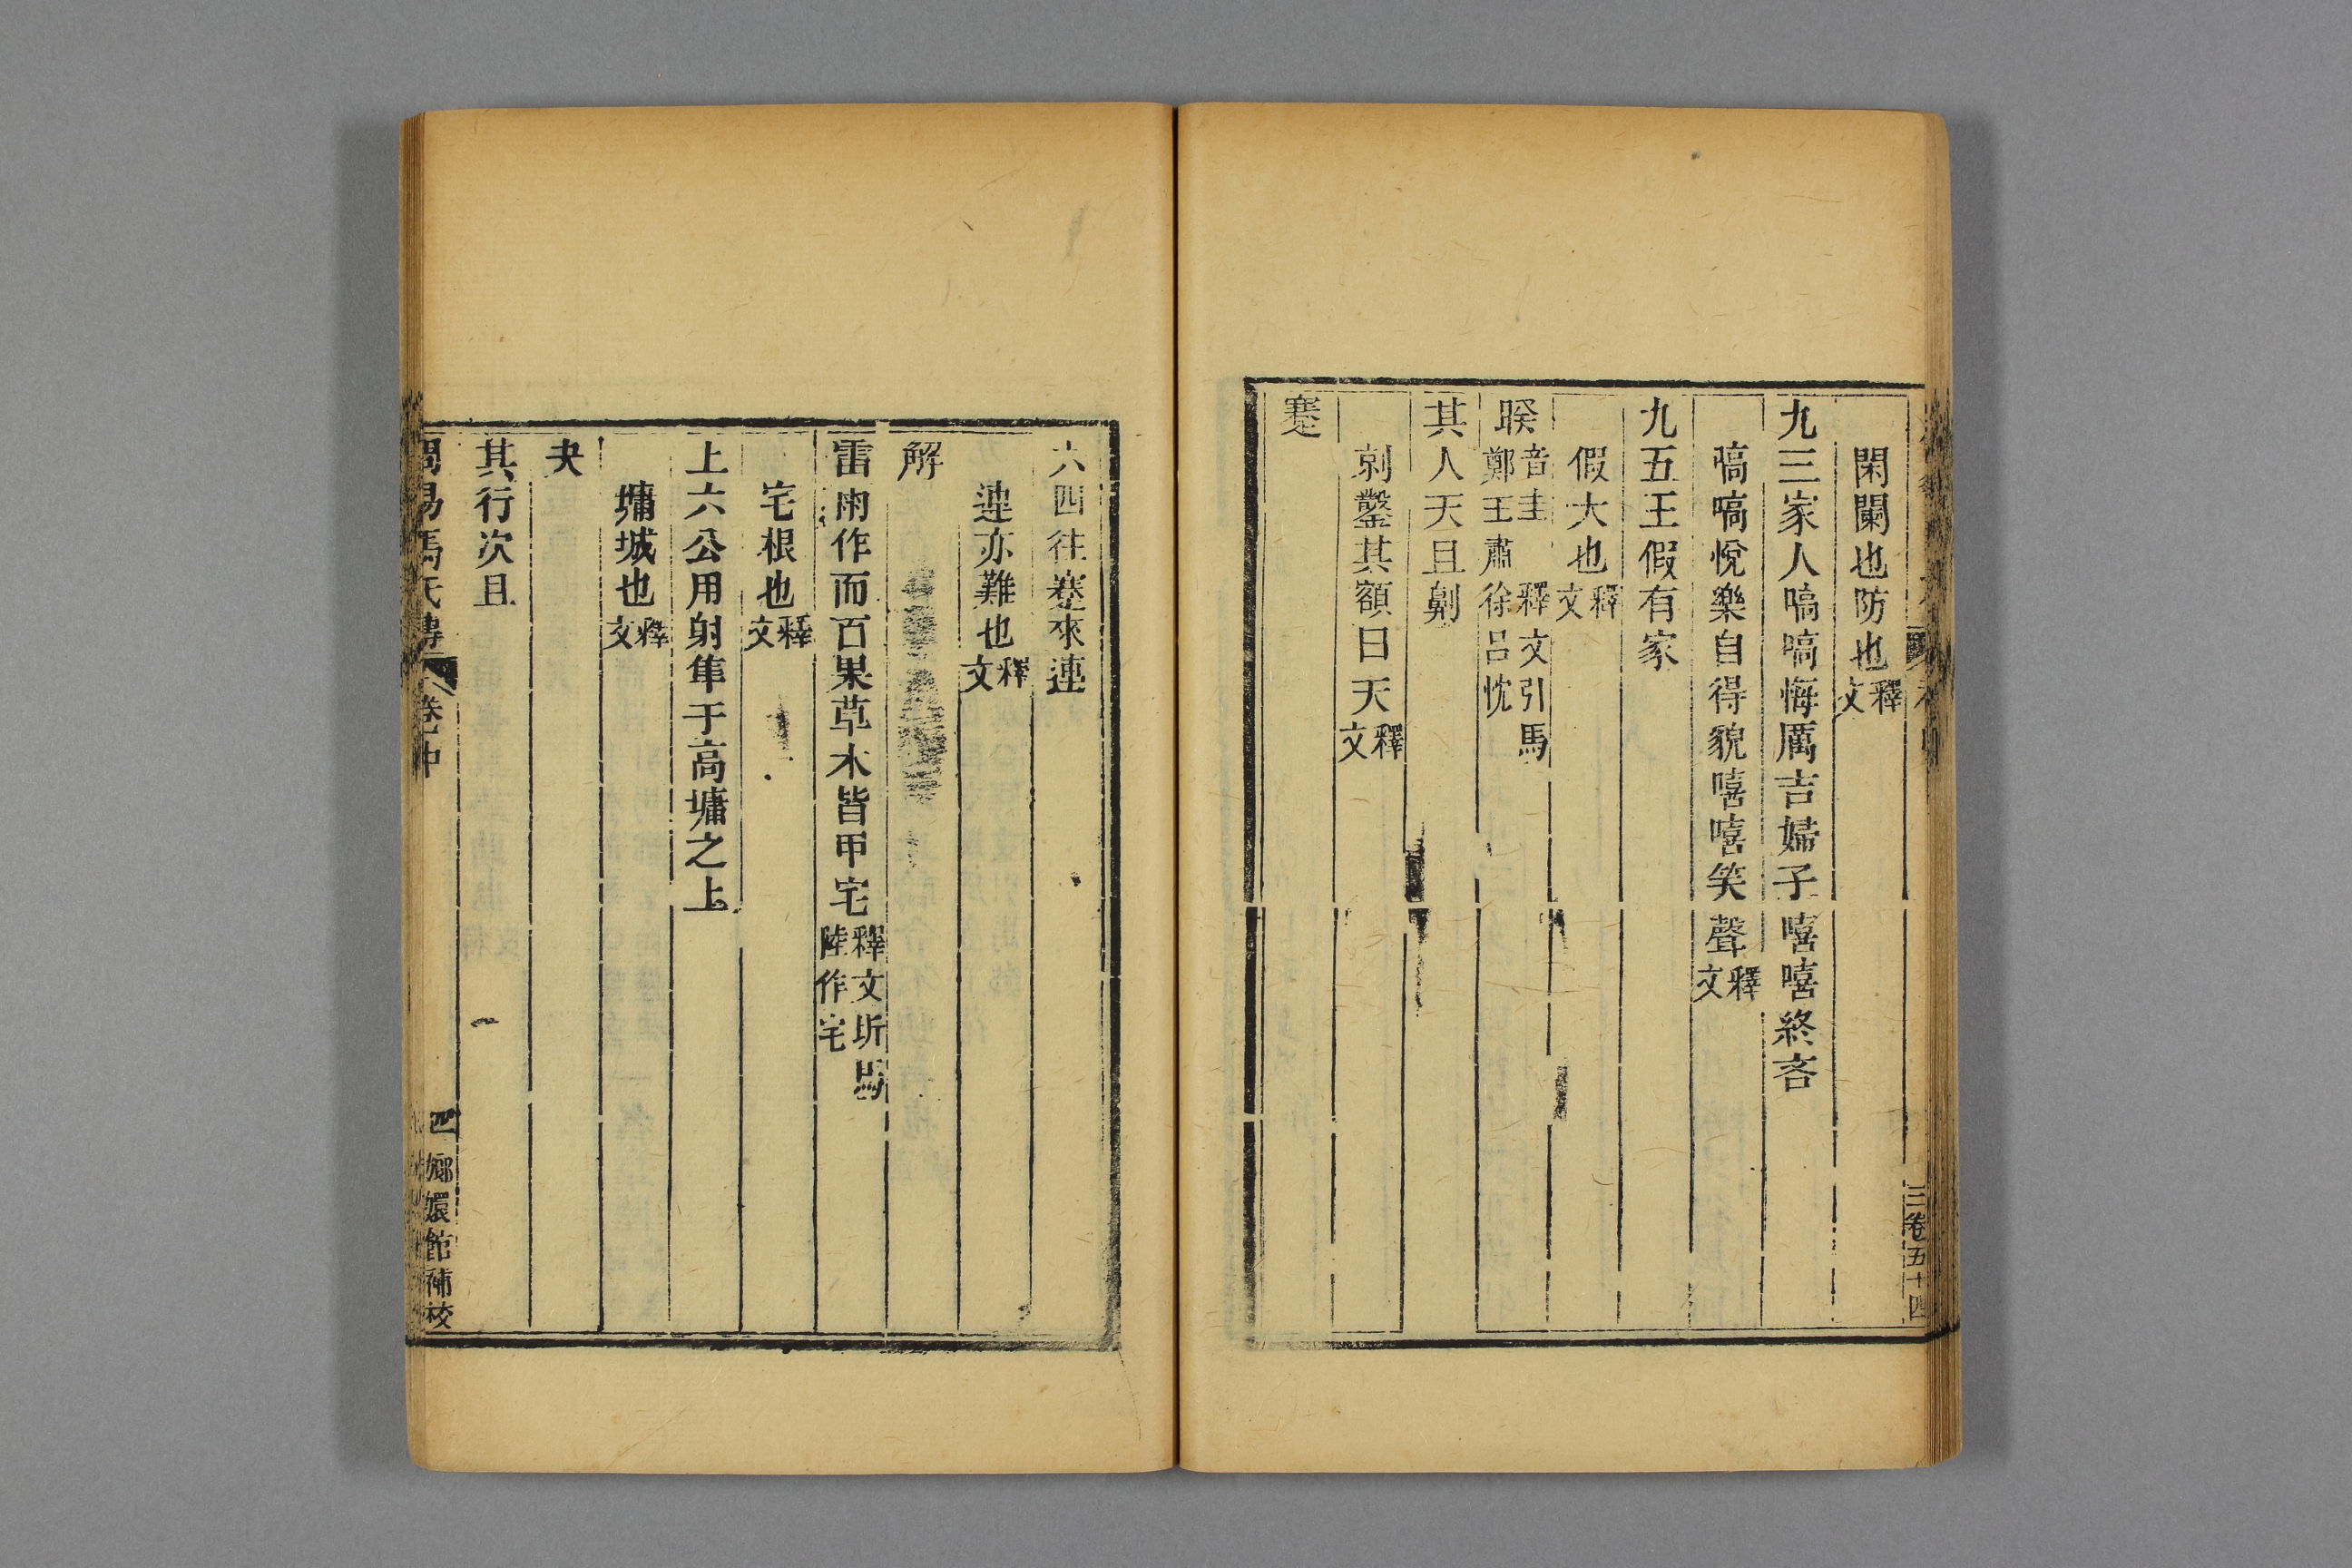 閑闌也防也釋文
九三家人嗃嗃悔厲吉婦子嘻嘻終吝
嗃嗃悅樂自得貌嘻嘻笑聲釋文
九五王假有家
假大也釋文
睽音圭 釋文引馬鄭王肅徐呂忱
其人天且劓
剠鑿其額曰天釋文
蹇
三卷五十四
六四往蹇來連
連亦難也釋文
解
雷雨作而百果草木皆甲宅釋文圻馬陸作宅
宅根也釋文
上六公用射隼于高墉之上
墉城也釋文
夬
其行次且
周易馬氏傳 卷中 四 嫏嬛館補校